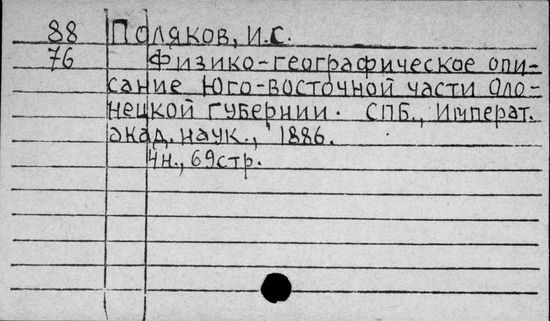 88 Поляков, И.С.
76 Физико-географическое опи-
сание Юго-восточной части Оло-
нецкой губернии. СПБ., Императ.
акад. наук., 1886.
4н., 69стр.